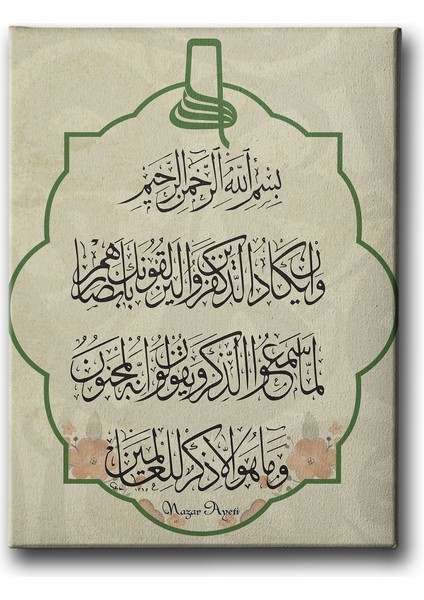 بِسْمِ اللّٰهِ الرَّحْمٰنِ الرَّحِيمِ
وَاِنْ يَكَادُ الَّذِينَ كَفَرُوا لَيُزْلِقُونَكَ بِاَبْصَارِهِمْ
لَمَّا سَمِعُوا الذِّكْرَ وَيَقُولُونَ اِنَّهُ لَمَجْنُونٌ
وَمَا هُوَ اِلَّا ذِكْرٌ لِلْعَالَمِينَ
Nazar Ayeti